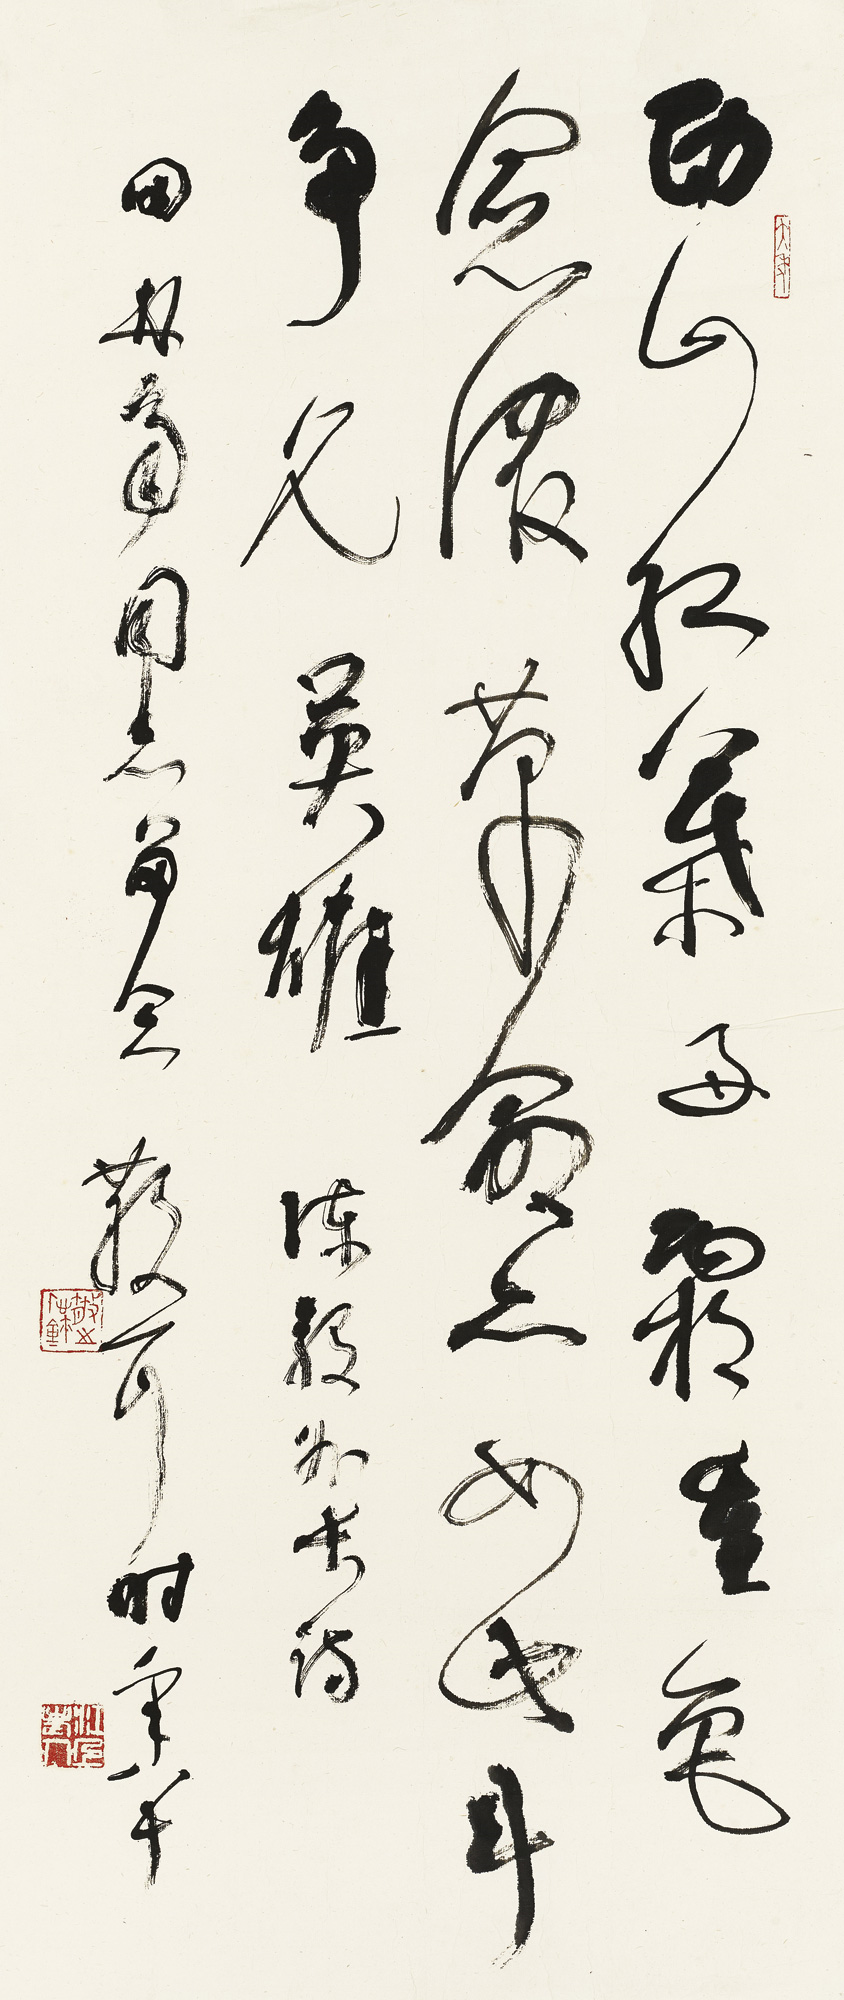 西山红葉好霜重色
愈浓革命亦如此斗
争见英雄 陈毅外长诗
田林同志留念 散耳时年八十